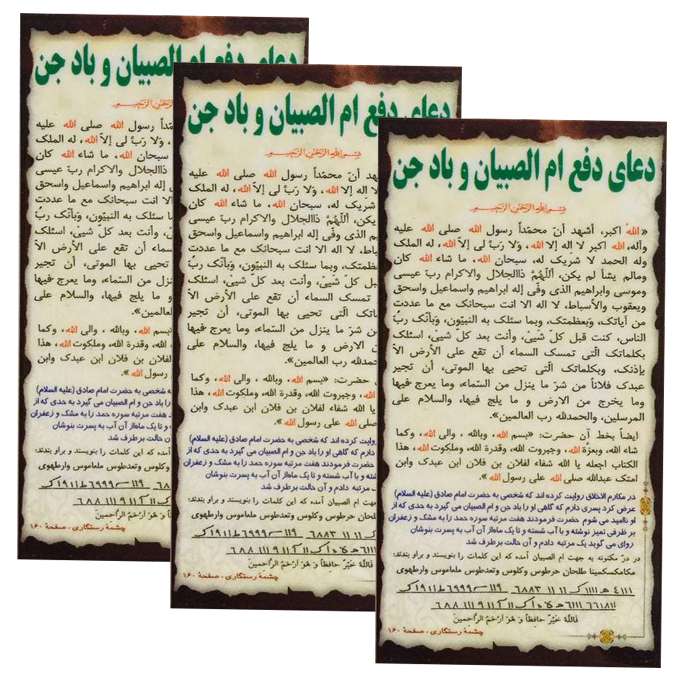 دعای دفع ام الصبیان و باد جن
بسم الله الرحمن الرحیم
« الله اکبر، أشهد أن محمّداً رسول الله صلی الله علیه
وآله، الله اکبر لا إله إلا الله، ولا ربّاً لی إلاّ الله، له الملک
وله الحمد لا شریک له، سبحان الله، ما شاء الله کان
ومالم یشأ لم یکن، اَللّهُمَّ ذاالجلال والاکرام ربّ عیسی
وموسی وابراهیم الذی وفّی إله ابراهیم واسماعیل واسحق
ویعقوب والأسباط، لا اله الا انت سبحانک مع ما عددت
من آیاتک، وبعظمتک، وبما سئلک به النبیّون، وَبأنّک ربّ
الناس، کنت قبل کلّ شییٔ، وأنت بعد کلّ شییٔ، اسئلک
بکلماتک الّتی تمسک السماء أن تقع علی الأرض الاّ
بإذنک، وبکلماتک الّتی تحیی بها الموتی، أن تجیر
عبدک فلاناً من شرّ ما ینزل من السّماء، وما یعرج فیها
وما یخرج من الارض و ما یلج فیها، والسلام علی
المرسلین، والحمدلله رب العالمین».
ایضاً بخط آن حضرت: «بسم الله، وبالله ، والی الله، وکما
شاء الله، وبعزة الله، وجبروت الله، وقدرة الله، وملکوت الله ، هذا
الکتاب اجعله یا الله شفاء لفلان بن فلان ابن عبدک وابن
امتک عبدالله صلی الله علی رسول الله ».
در مکارم الاخلاق روایت کرده اند که شخصی به حضرت امام صادق (علیه السلام)
عرض کرد پسری دارم که گاهی او را باد جن و ام الصبیان می گیرد به حدی که از
او ناامید می شوم حضرت فرمودند هفت مرتبه سوره حمد را به مشک و زعفران
بر ظرفی تمیز نوشته و با آب شسته و تا یک ماه از آن آب به پسرت بنوشان
روای می گوید یک مرتبه دادم و آن حالت برطرف شد
در درّ مکنونه به جهت ام الصبیان آمده که این کلمات را بنویسند و براو بندند:
فَاللهُ خَیْرٌ حافِظاً وَ هُوَ اَرْحَمُ الرّاحِمین
چشمهٔ رستگاری ، صفحهٔ ۱۶۰